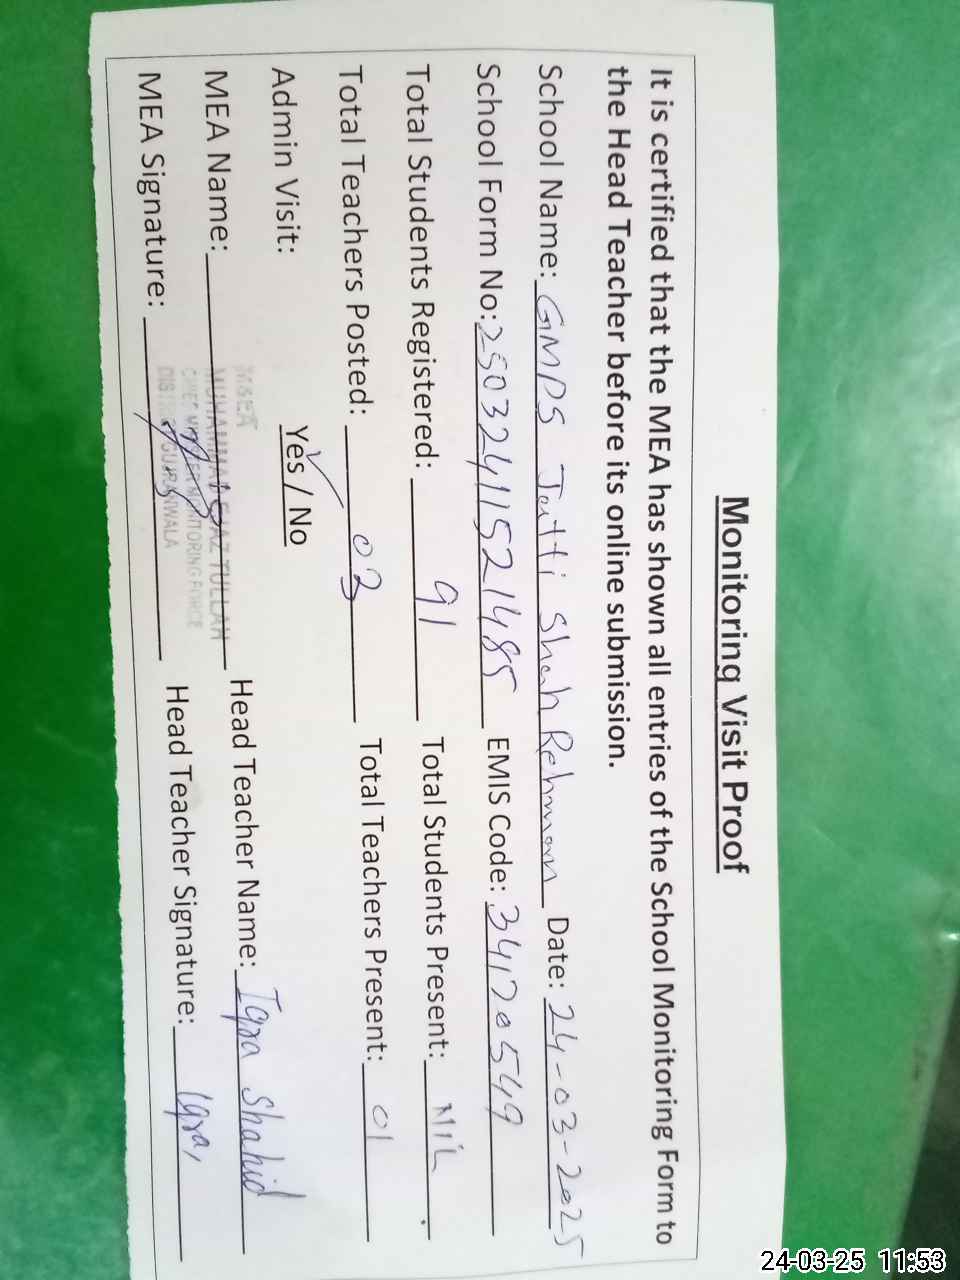 Monitoring Visit Proof
It is certified that the MEA has shown all entries of the School Monitoring Form to
the Head Teacher before its online submission.
School Name: GMPS Jatti Shah Rehman Date: 24-03-2025
School Form No: 25032411521485 EMIS Code: 34120549
Total Students Registered: 91 Total Students Present: NIL
Total Teachers Posted: 03 Total Teachers Present: 01
Admin Visit: Yes / No
M&EA
MEA Name: MUHAMMAD EJAZ TULLAH Head Teacher Name: Iqra Shahid
CHIEF MINISTER MONITORING FORCE
MEA Signature: DISTT. GUJRANWALA Head Teacher Signature: Iqra
24-03-25 11:53